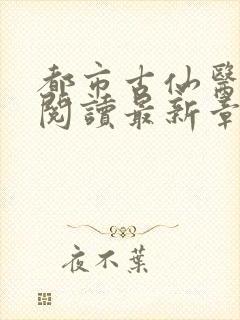 都市古仙醫
閱讀最新章
夜不葉